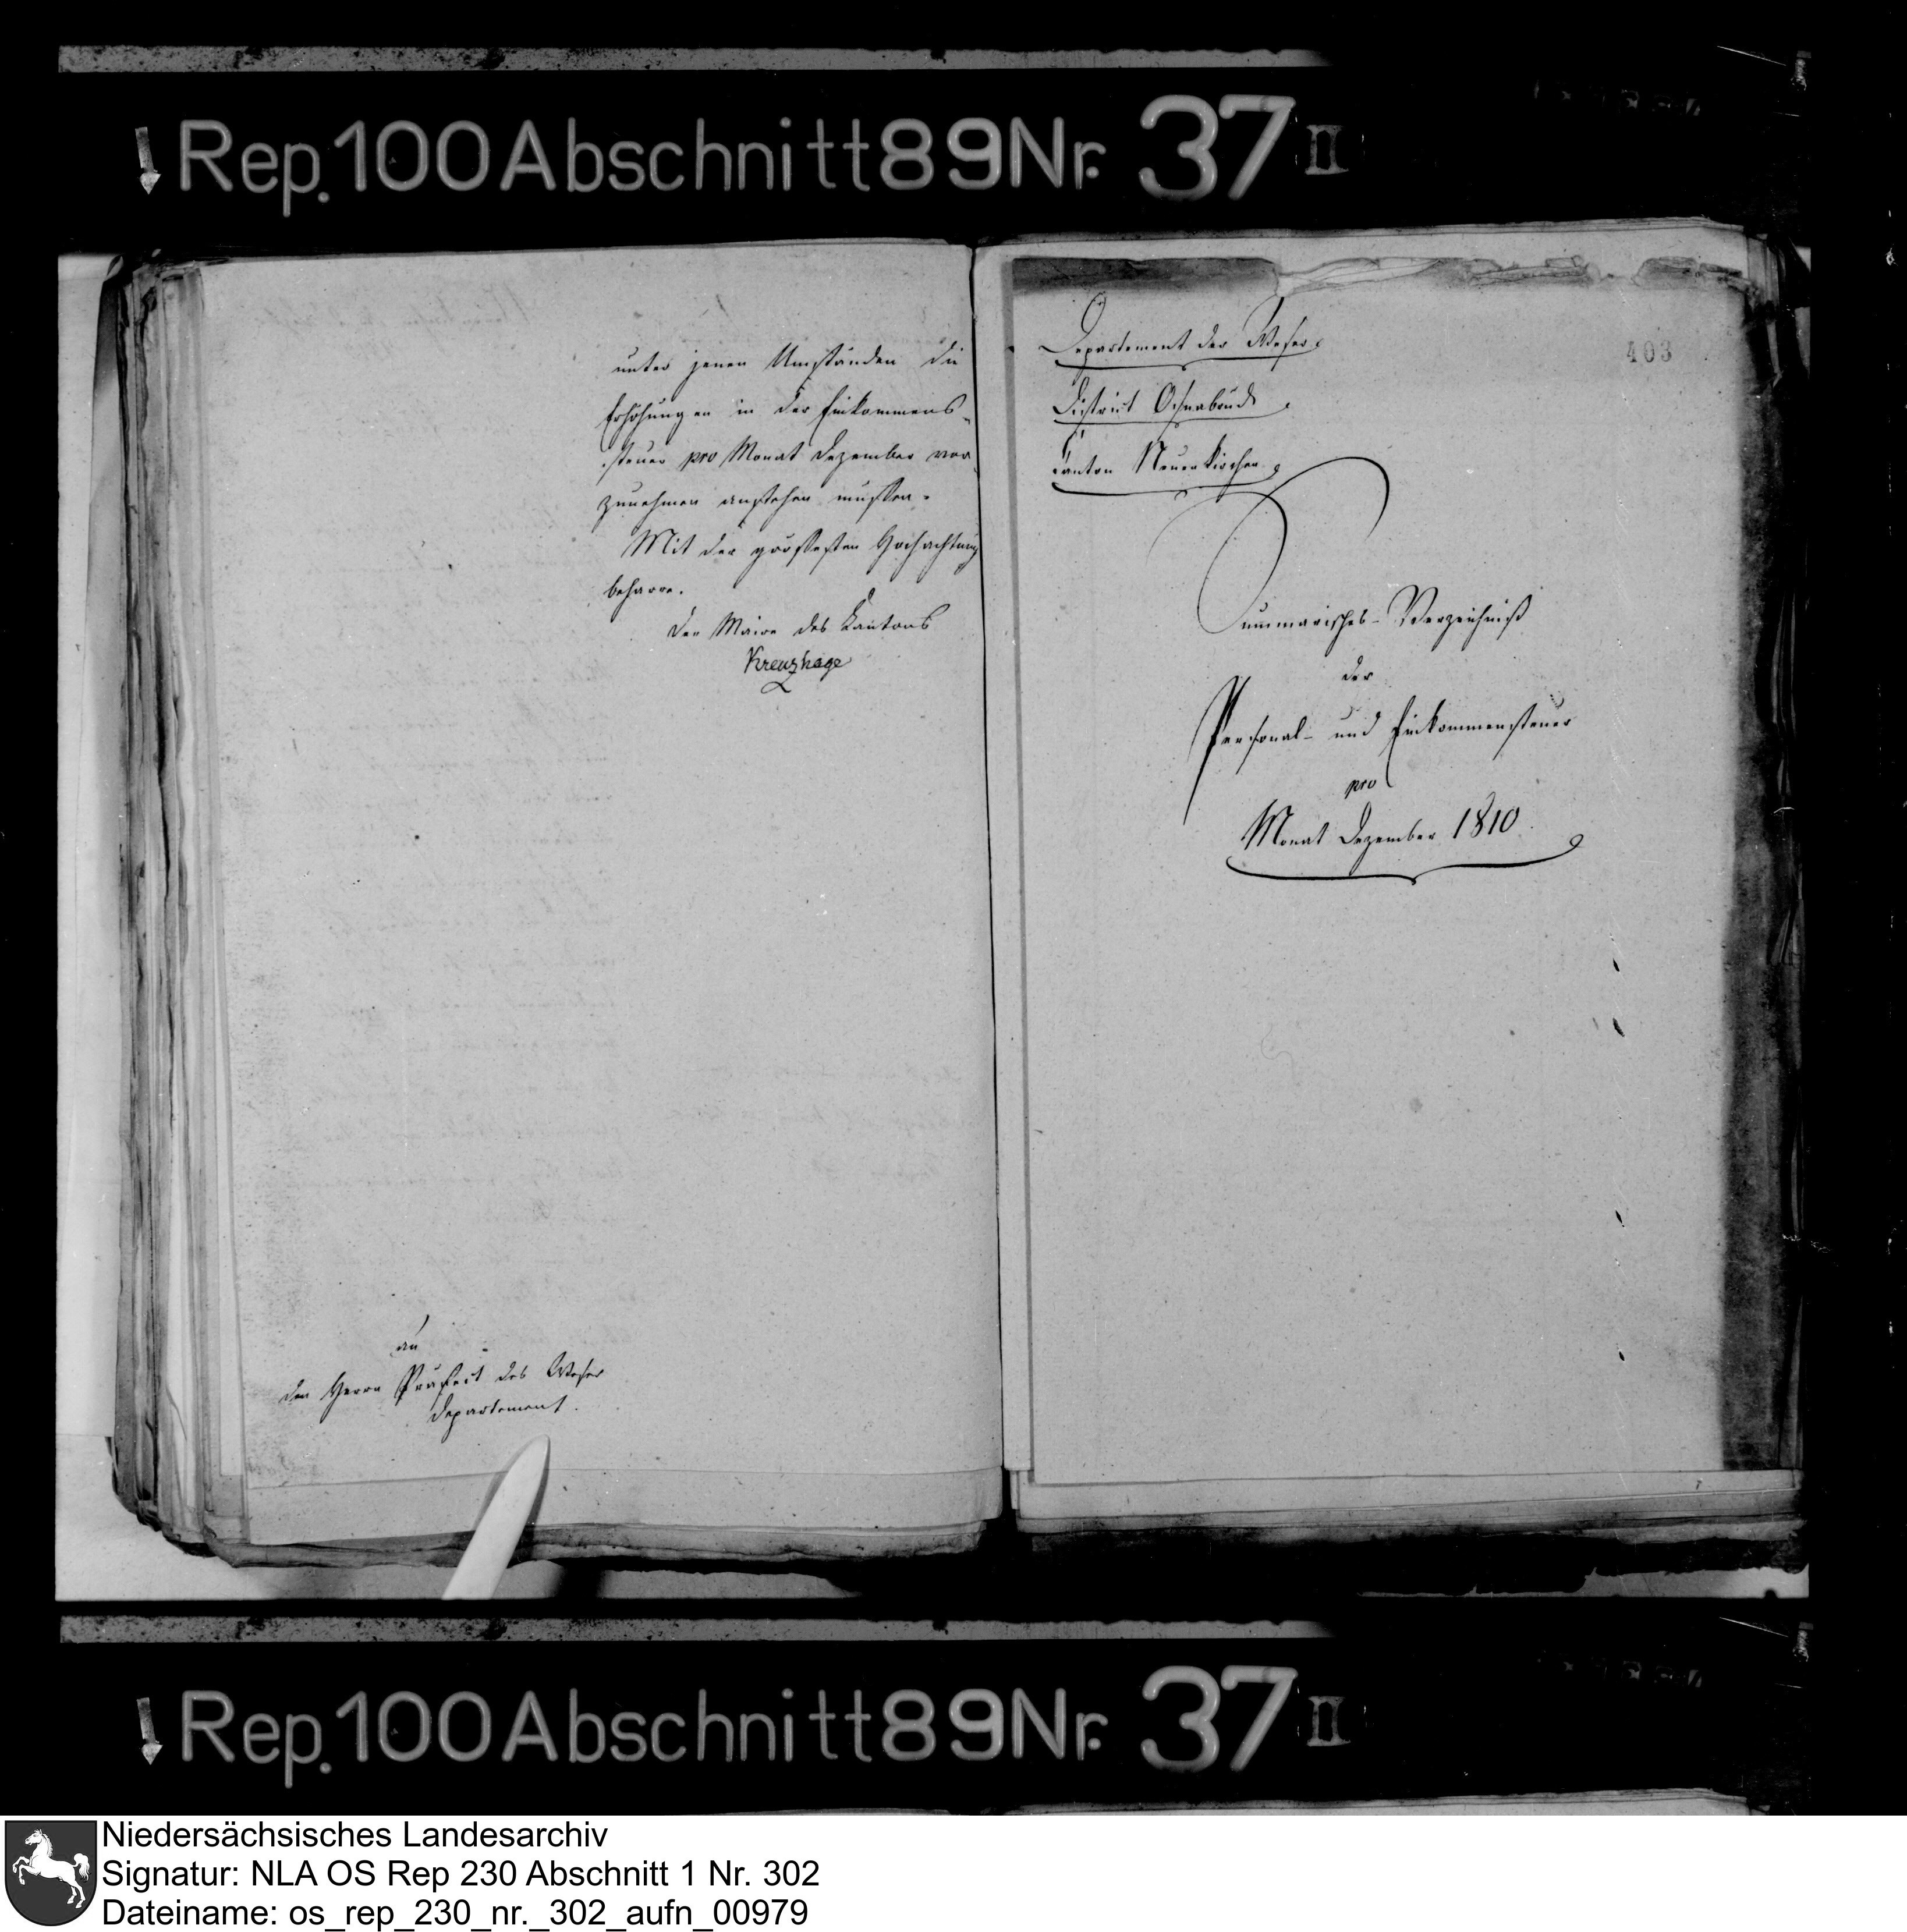 Rep. 100 Abschnitt 89 Nr. 37 II
unter jenen Umständen die
Erhöhungen in der Einkommens-
steuer pro Monat Dezember vor
zunehmen anstehen müssen.
Mit der größesten Hochachtung
beharre.
Der Maire des Kantons
Kreuzhage
an
den Herrn Präfect des Weser
Departement.
403
Departement der Weser
District Osnabrück
Canton Neuenkirchen
Summarisches-Verzeichniß
der
Personal- und Einkommensteuer
pro
Monat Dezember 1810
Rep. 100 Abschnitt 89 Nr. 37 II
Niedersächsisches Landesarchiv
Signatur: NLA OS Rep 230 Abschnitt 1 Nr. 302
Dateiname: os_rep_230_nr._302_aufn_00979